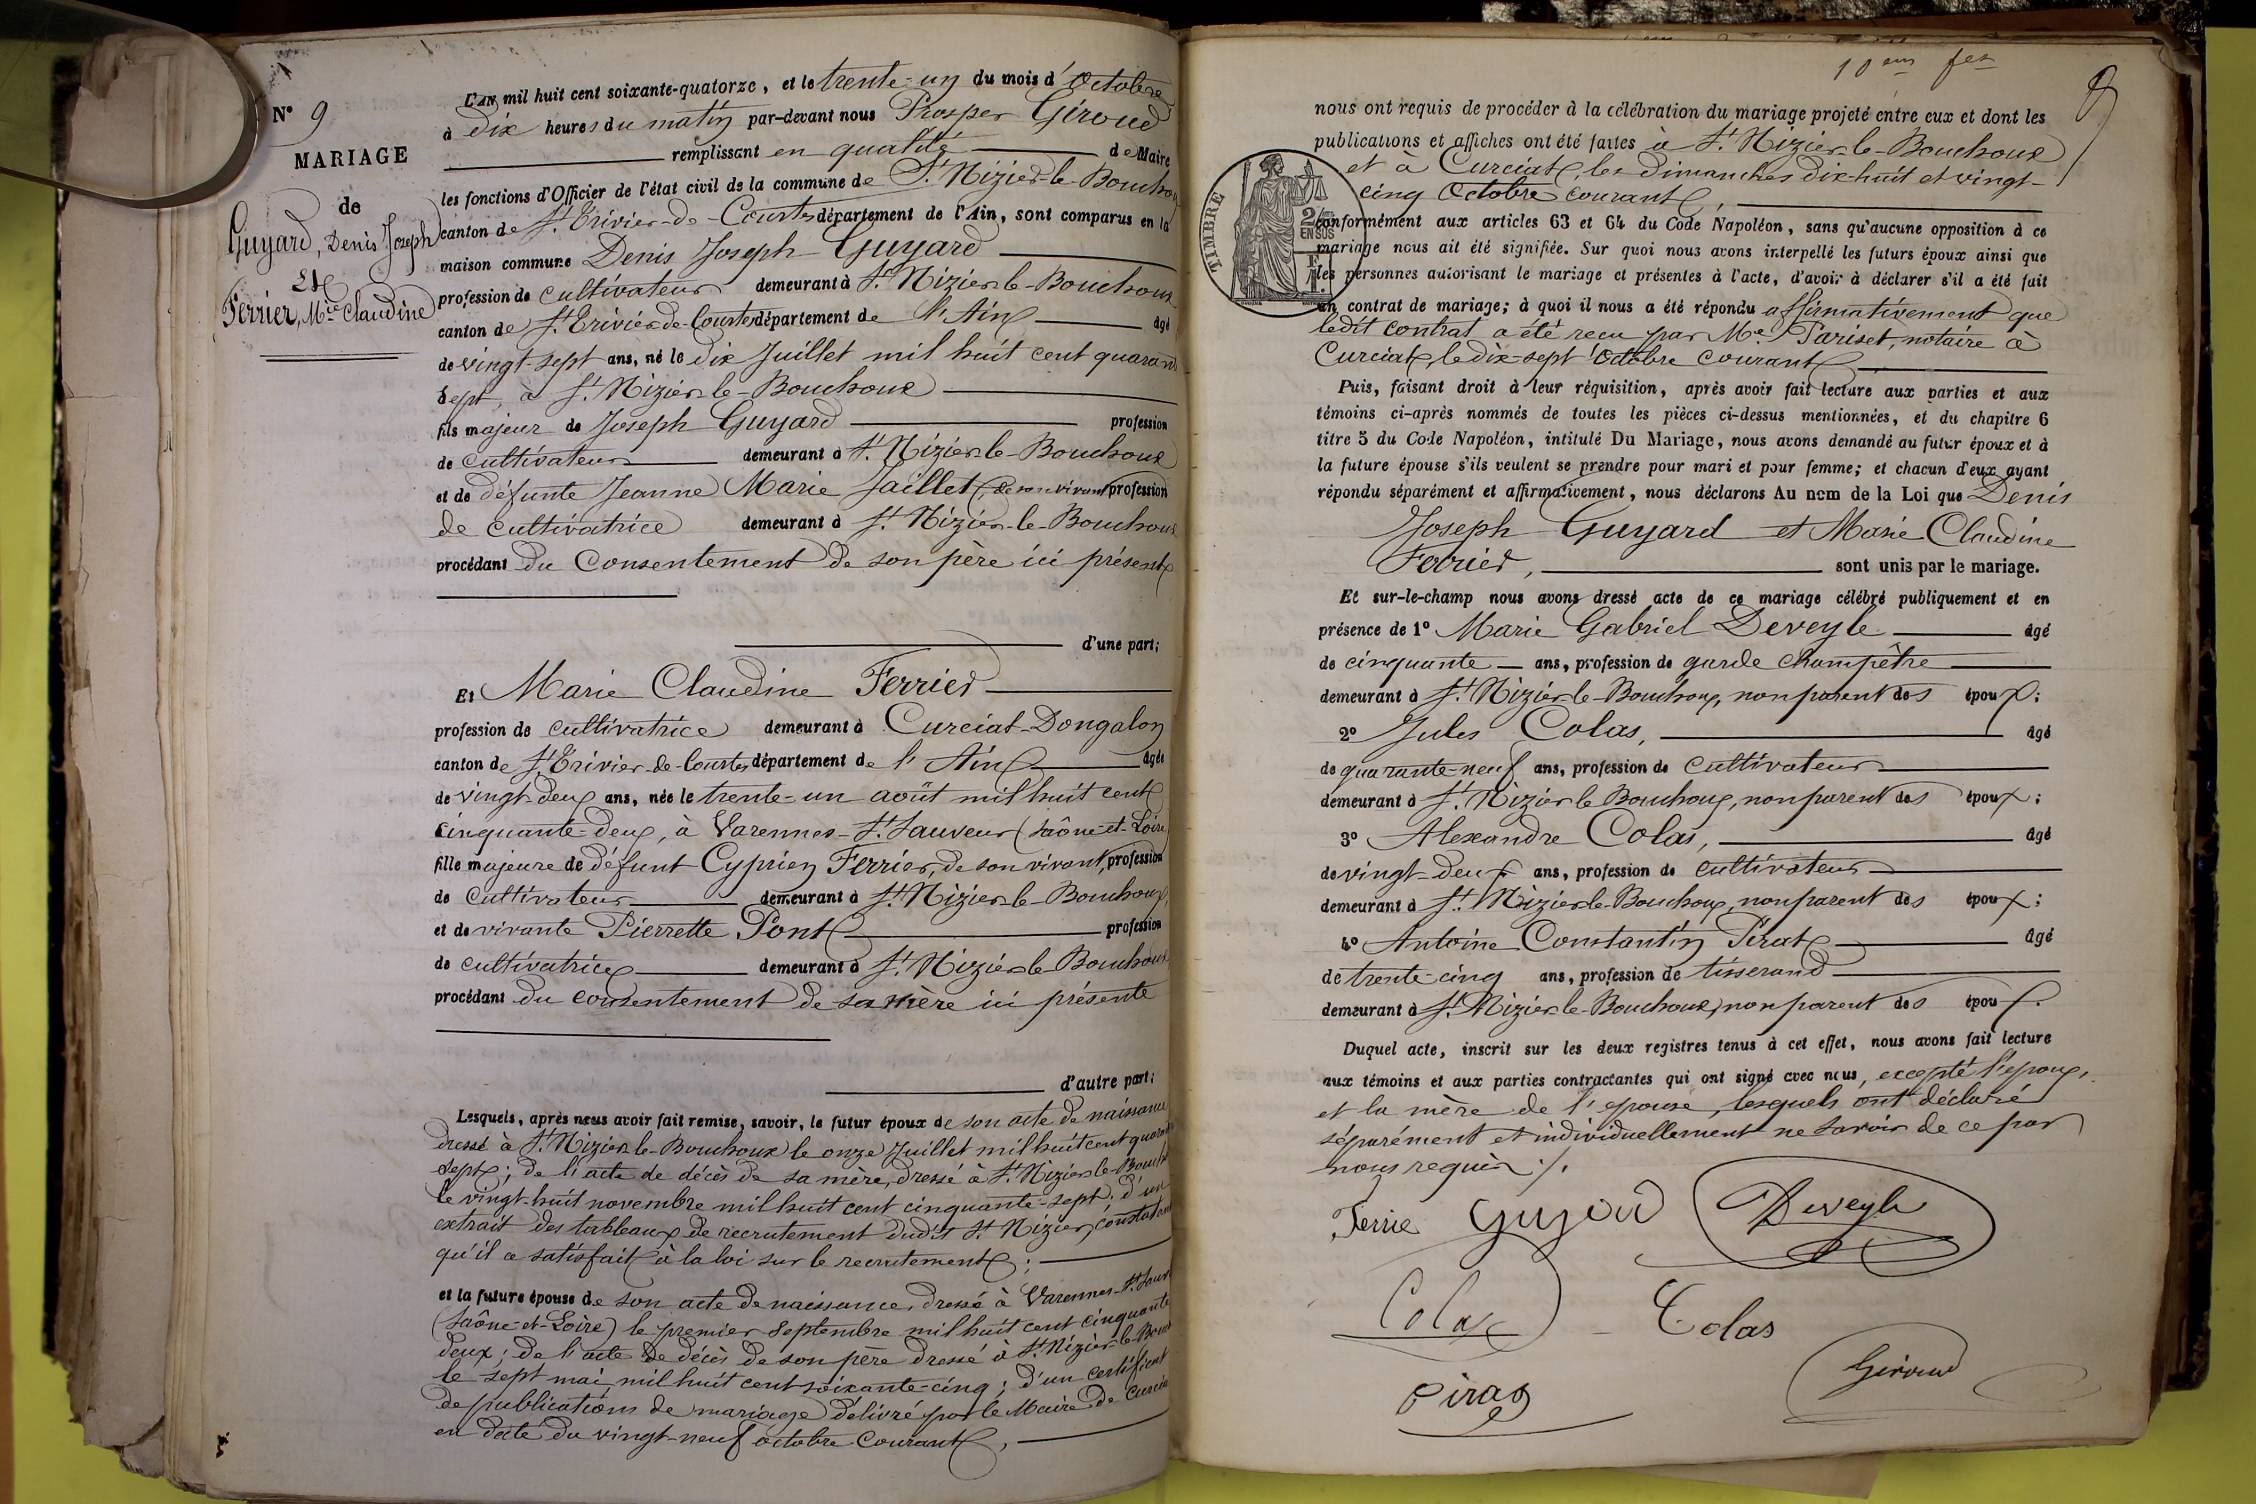 N° 9
MARIAGE
de
Guyard, Denis Joseph
Et
Ferrier, Mie Claudine
L'AN mil huit cent soixante-quatorze, et le trente-un du mois d'Octobre
à dix heures du matin par-devant nous Prosper Giroud
remplissant en qualité de Maire
les fonctions d'Officier de l'état civil de la commune de St Nizier-le-Bouchoux
canton de St Trivier-de-Courtes département de l'Ain, sont comparus en la
maison commune Denis Joseph Guyard
profession de cultivateur demeurant à St Nizier-le-Bouchoux
canton de St Trivier-de-Courtes département de l'Ain âgé
de vingt-sept ans, né le dix Juillet mil huit cent quarante
sept, à St Nizier-le-Bouchoux
fils majeur de Joseph Guyard profession
de cultivateur demeurant à St Nizier-le-Bouchoux
et de défunte Jeanne Marie Jaillet, de son vivant profession
de cultivatrice demeurant à St Nizier-le-Bouchoux
procédant du consentement de son père ici présent
d'une part;
Et Marie Claudine Ferrier
profession de cultivatrice demeurant à Curciat-Dongalon
canton de St Trivier-de-Courtes département de l'Ain âgée
de vingt-deux ans, née le trente-un août mil huit cent
cinquante-deux, à Varennes-St Sauveur (Saône-et-Loire)
fille majeure de défunt Cyprien Ferrier, de son vivant, profession
de cultivateur demeurant à St Nizier-le-Bouchoux,
et de vivante Pierrette Pont profession
de cultivatrice demeurant à St Nizier-le-Bouchoux
procédant du consentement de sa mère ici présente
d'autre part;
Lesquels, après nous avoir fait remise, savoir, le futur époux de son acte de naissance
dressé à St Nizier-le-Bouchoux le onze Juillet mil huit cent quarante
sept; de l'acte de décès de sa mère, dressé à St Nizier-le-Bouch
le vingt-huit novembre mil huit cent cinquante-sept; d'un
extrait des tableaux de recrutement dudit St Nizier, constatant
qu'il a satisfait à la loi sur le recrutement;
et la future épouse de son acte de naissance, dressé à Varennes-St Sauv
(Saône-et-Loire) le premier Septembre mil huit cent cinquante
deux; de l'acte de décès de son père dressé à St Nizier-le-Bouch
le sept mai mil huit cent soixante-cinq; d'un certificat
de publications de mariage délivré par le Maire de Curciat
en date du vingt-neuf octobre courant,
10em f
9
TIMBRE
2/10 EN SUS
nous ont requis de procéder à la célébration du mariage projeté entre eux et dont les
publications et affiches ont été faites à St Nizier-le-Bouchoux
et à Curciat, les dimanches dix-huit et vingt-
cinq Octobre courant,
conformément aux articles 63 et 64 du Code Napoléon, sans qu'aucune opposition à ce
mariage nous ait été signifiée. Sur quoi nous avons interpellé les futurs époux ainsi que
les personnes autorisant le mariage et présentes à l'acte, d'avoir à déclarer s'il a été fait
un contrat de mariage; à quoi il nous a été répondu affirmativement que
ledit contrat a été reçu par Me Pariset, notaire à
Curciat, le dix-sept Octobre courant
Puis, faisant droit à leur réquisition, après avoir fait lecture aux parties et aux
témoins ci-après nommés de toutes les pièces ci-dessus mentionnées, et du chapitre 6
titre 5 du Code Napoléon, intitulé Du Mariage, nous avons demandé au futur époux et à
la future épouse s'ils veulent se prendre pour mari et pour femme; et chacun d'eux ayant
répondu séparément et affirmativement, nous déclarons Au nom de la Loi que Denis
Joseph Guyard et Marie Claudine
Ferrier, sont unis par le mariage.
Et sur-le-champ nous avons dressé acte de ce mariage célébré publiquement et en
présence de 1° Marie Gabriel Deveyle âgé
de cinquante ans, profession de garde champêtre
demeurant à St Nizier-le-Bouchoux, non parent des époux;
2° Jules Colas, âgé
de quarante-neuf ans, profession de cultivateur
demeurant à St Nizier le Bouchoux, non parent des époux;
3° Alexandre Colas, âgé
de vingt-deux ans, profession de cultivateur
demeurant à St Nizier-le-Bouchoux, non parent des époux;
4° Antoine Constantin Pirat âgé
de trente-cinq ans, profession de tisserand
demeurant à St Nizier-le-Bouchoux, non parent des époux.
Duquel acte, inscrit sur les deux registres tenus à cet effet, nous avons fait lecture
aux témoins et aux parties contractantes qui ont signé avec nous, excepté l'époux,
et la mère de l'épouse, lesquels ont déclaré
séparément et individuellement ne savoir de ce par
nous requis ./.
Ferrie Guyard Deveyle
Colas Colas
Pirag Giroud